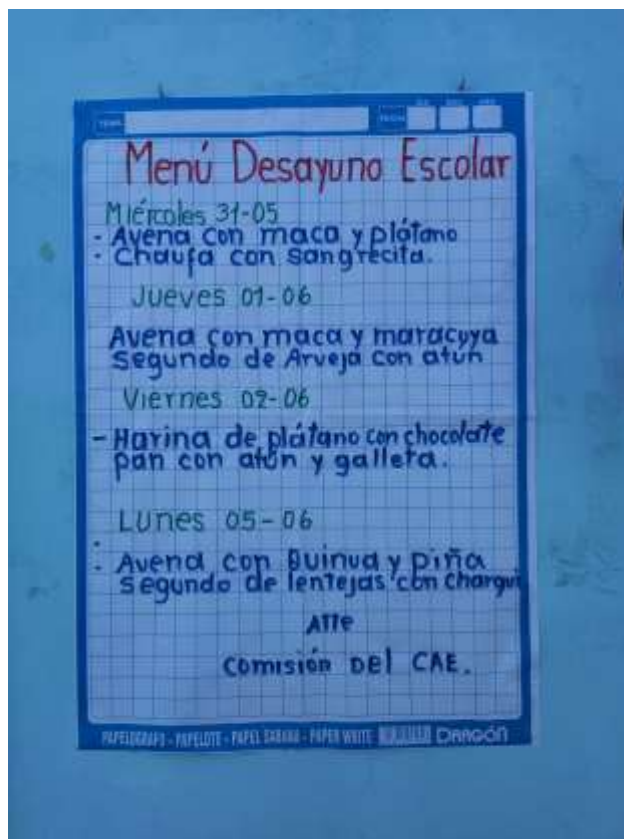 TEMA:
FECHA
DIA MES AÑO
Menú Desayuno Escolar
Miércoles 31-05
- Avena con maca y plátano
- Chaufa con sangrecita.
Jueves 01-06
Avena con maca y maracuya
segundo de Arveja con atún
Viernes 02-06
- Harina de plátano con chocolate
pan con atún y galleta.
Lunes 05-06
- Avena con Quinua y piña
segundo de lentejas con charqui
Atte
Comisión Del CAE.
PAPELOGRAFO - PAPELOTE - PAPEL SABANA - PAPER WRITE DRAGÓN